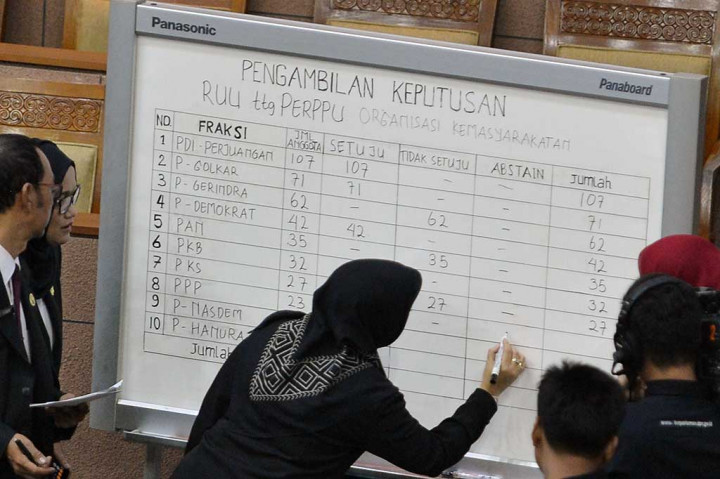 Panasonic
Panaboard
PENGAMBILAN KEPUTUSAN
RUU ttg PERPPU ORGANISASI KEMASYARAKATAN
NO. FRAKSI JML ANGGOTA SETUJU TIDAK SETUJU ABSTAIN Jumlah
1 PDI-PERJUANGAN 107 107 - - 107
2 P-GOLKAR 71 71 - - 71
3 P-GERINDRA 62 - 62 - 62
4 P-DEMOKRAT 42 42 - - 42
5 PAN 35 - 35 - 35
6 PKB 32 - - 32
7 PKS 27 27 - 27
8 PPP 23 - -
9 P-NASDEM
10 P-HANURA
Jumlah